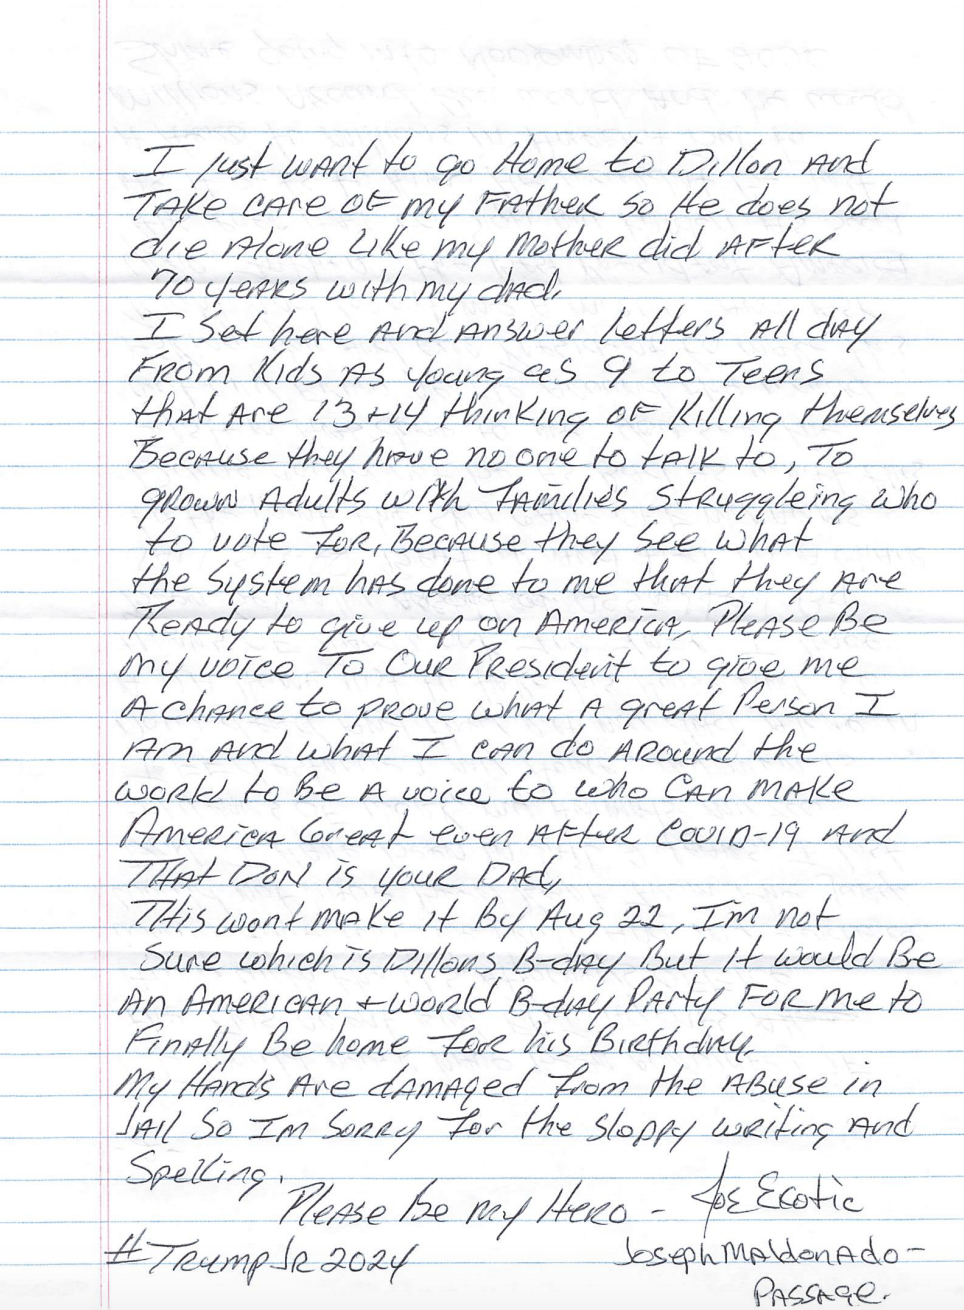 I just want to go Home to Dillon And
Take care of my Father so He does not
die Alone Like my Mother did After
70 years with my dad.
I set here and answer letters all day
From Kids As young as 9 to Teens
that Are 13+14 thinking of Killing themselves
Because they have no one to talk to, To
grown Adults with families Struggleing who
to vote for, Because they see what
the System has done to me that they Are
Ready to give up on America, Please Be
my voice To Our President to give me
A chance to prove what A great Person I
Am And what I can do Around the
world to Be A voice to who Can make
America Great even After Covid-19 And
THAT DON is your DAD,
This wont make it By Aug 22, Im not
Sure which is Dillons B-day But it would Be
An American + world B-day Party For me to
Finally Be home for his Birthday.
My Hands Are damaged from the Abuse in
Jail So Im Sorry for the sloppy writing And
Spelling.
Please be my Hero - Joe Exotic
#TrumpJr2024 Joseph Maldonado-
Passage.